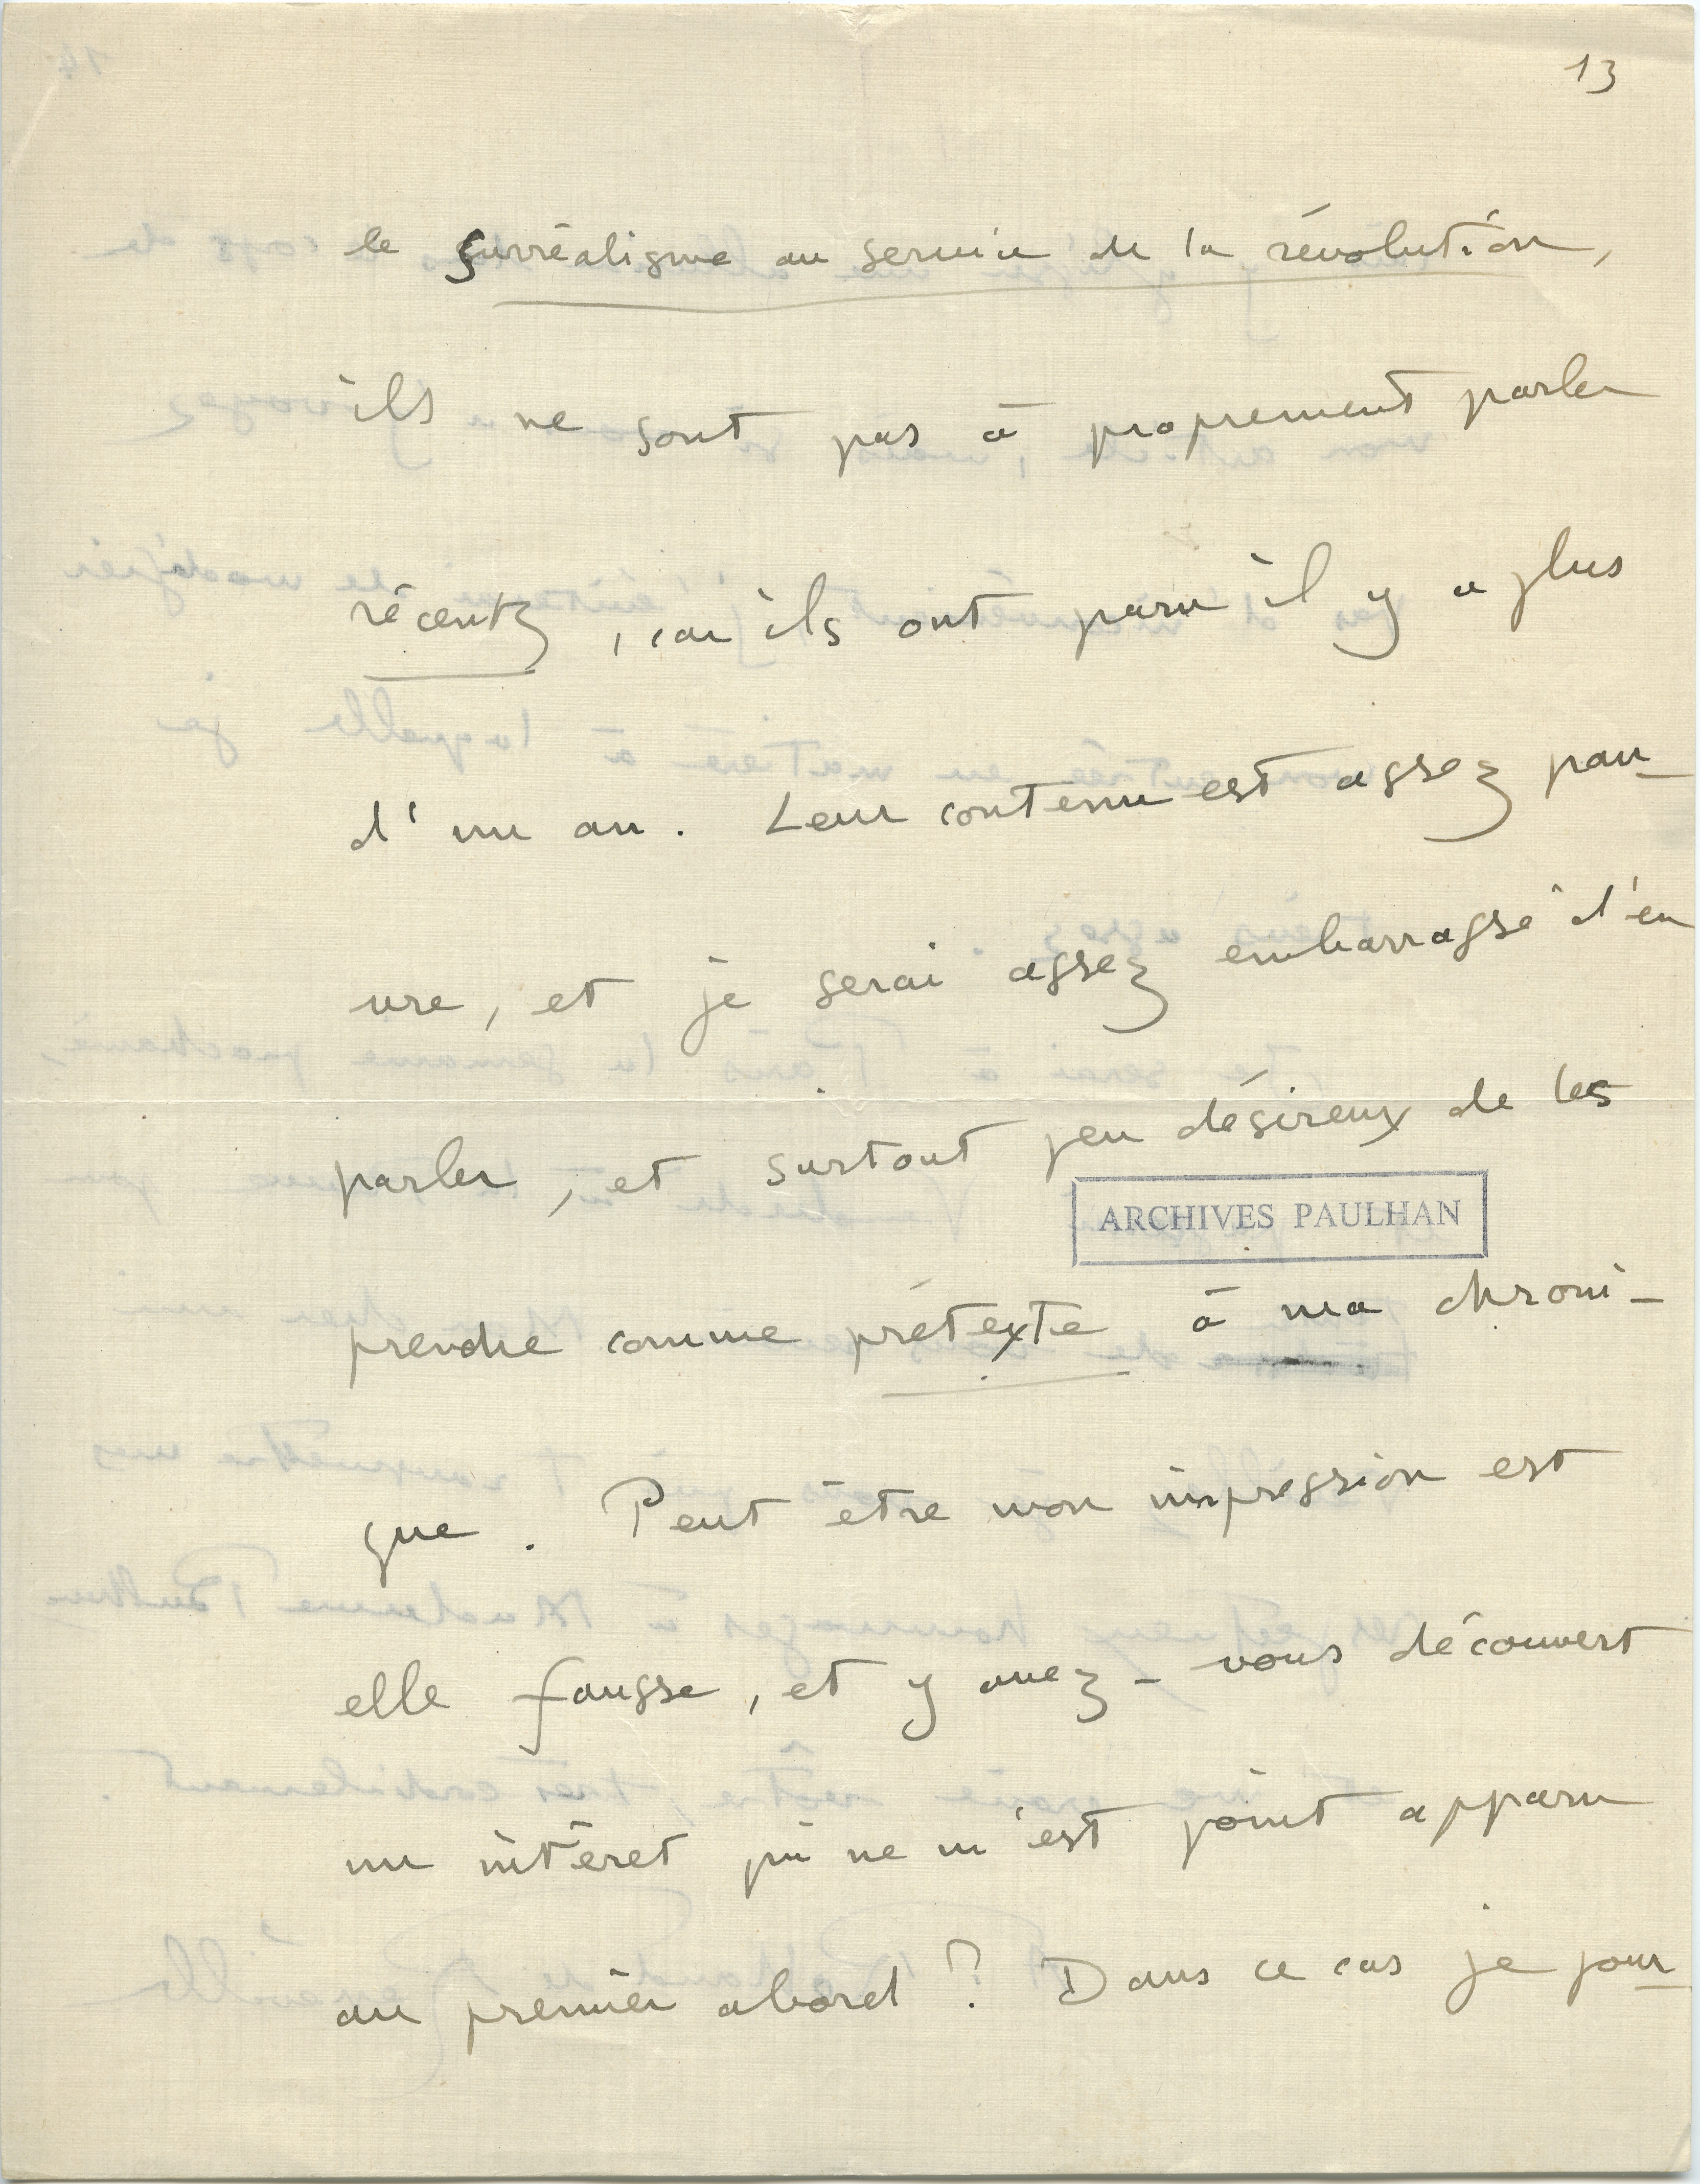 13
le surréalisme au service de la révolution,
ils ne sont pas à proprement parler
récents, car ils ont paru il y a plus
d'un an. Leur contenu est assez pau-
vre, et je serai assez embarrassé d'en
parler, et surtout peu désireux de les
ARCHIVES PAULHAN
prendre comme prétexte à ma chroni-
que. Peut être mon impression est
elle fausse, et y avez-vous découvert
un intéret qui ne m'est point apparu
au premier abord ? Dans ce cas je pour-